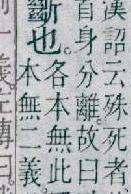 漢詔云殊死者
首身分離故曰
斷也。
各本無此
本無二義
一義。左傳曰